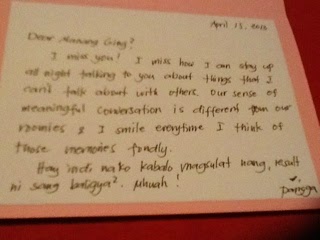 April 13, 2013
Dear Manang Ging?
I miss you! I miss how I can stay up
all night talking to you about things that I
can't talk about with others. Our sense of
meaningful conversation is different from our
roomies & I smile everytime I think of
those memories fondly.
Hay indi nako kabalo magsulat nang, result
ni sang